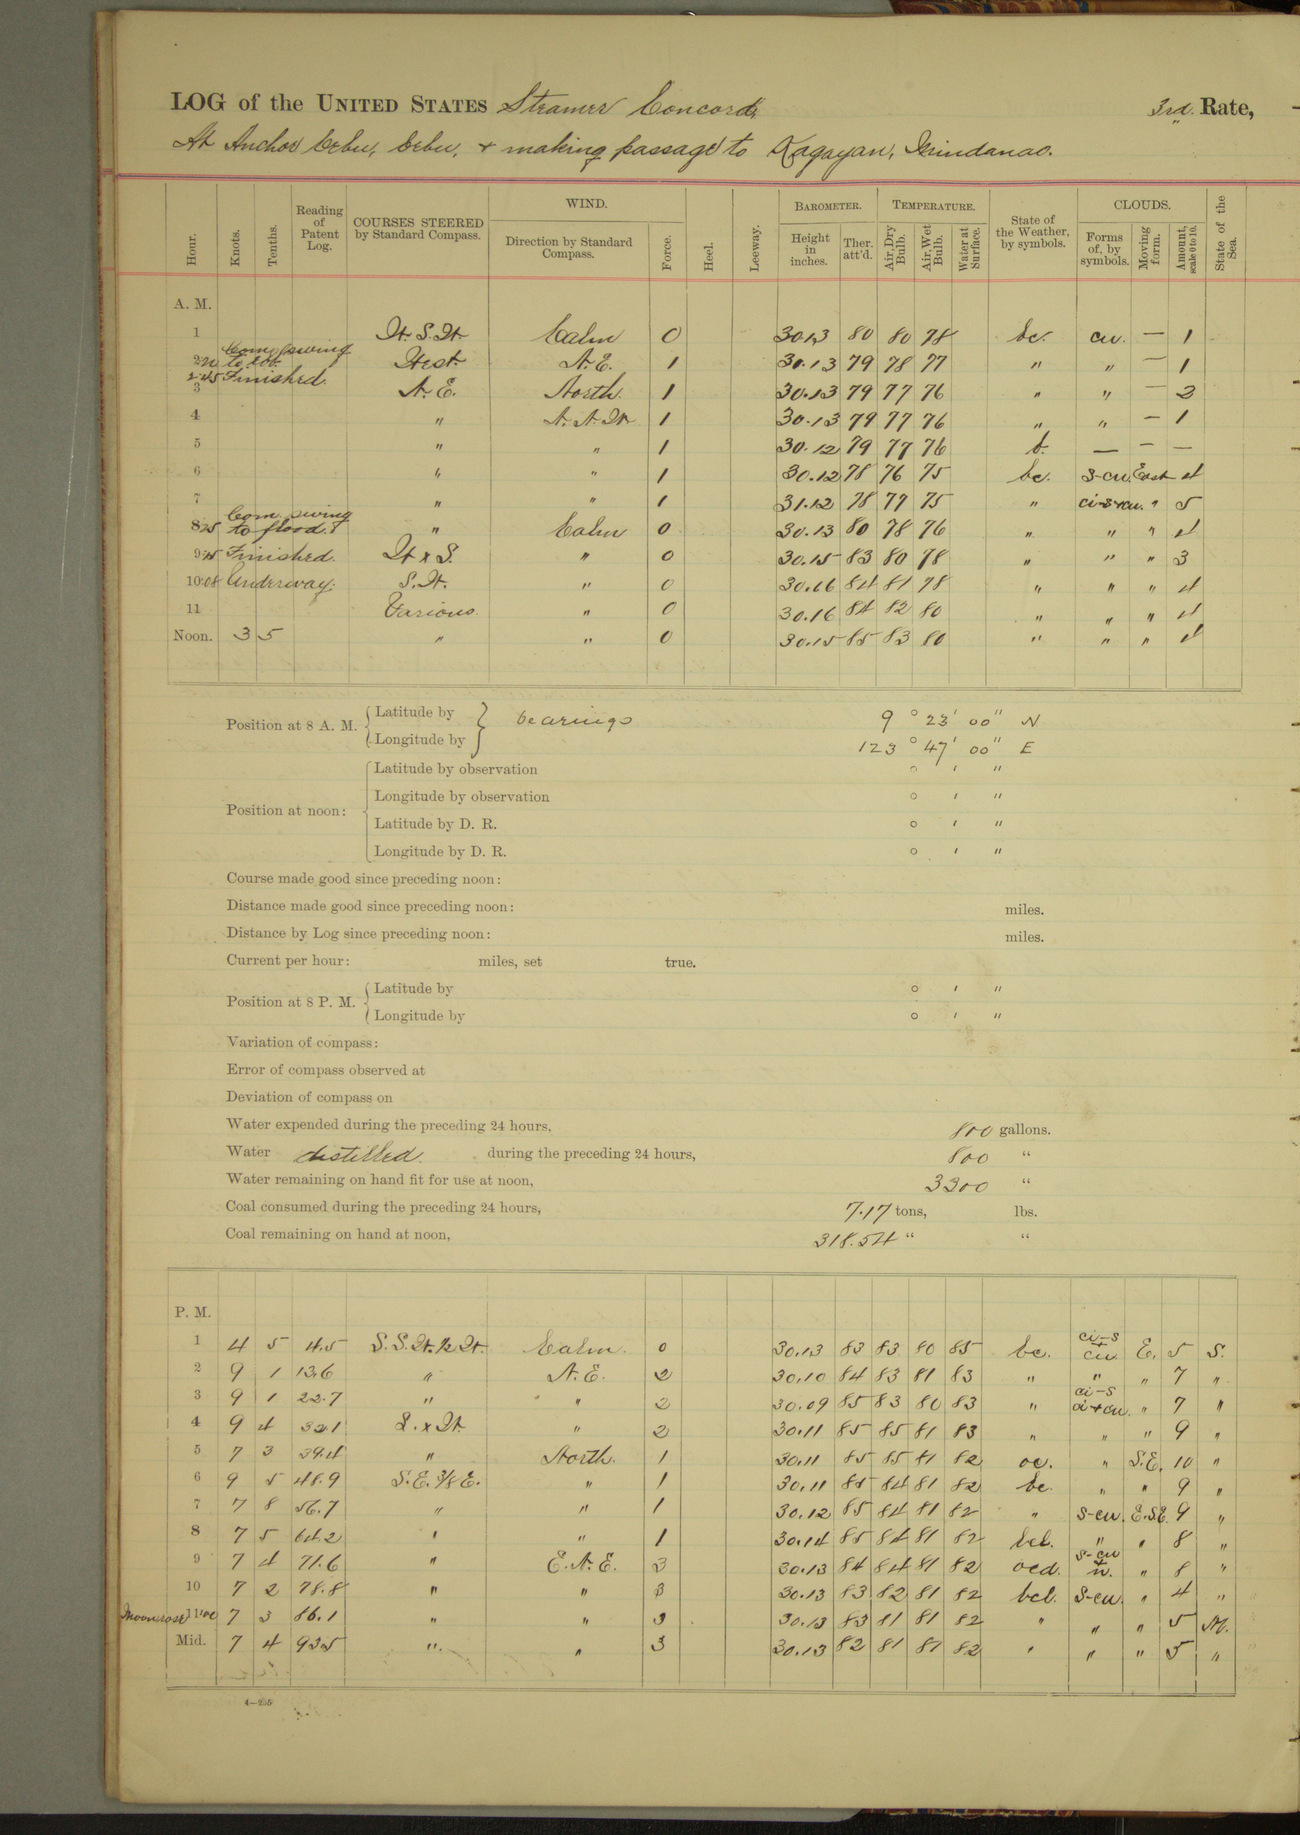 LOG of the UNITED STATES Steamer Concord, 3rd. Rate,
At Anchor Cebu, Cebu, + making passage to Kagayan, Mindanao.
Hour. Knots. Tenths. Reading of Patent Log. COURSES STEERED by Standard Compass. WIND. Direction by Standard Compass. Force. Heel. Leeway. BAROMETER. Height in inches. Ther. att'd. TEMPERATURE. Air, Dry Bulb. Air, Wet Bulb. Water at Surface. State of the Weather, by symbols. CLOUDS. Forms of, by symbols. Moving form. Amount, scale 0 to 10. State of the Sea.
A. M.
1 W. S. W. Calm 0 30.13 80 80 78 bc. cu. — 1
2 Com. swing to ebb. West. N. E. 1 30.13 79 78 77 " " — 1
2:45 Finished.
3 N. E. North. 1 30.13 79 77 76 " " — 2
4 " N. N. W. 1 30.13 79 77 76 " " — 1
5 " " 1 30.12 79 77 76 b. — — —
6 " " 1 30.12 78 76 75 bc. s-cu. East 4
7 " " 1 31.12 78 77 75 " ci-s+cu. " 5
8 25 Com. swing to flood. " Calm 0 30.13 80 78 76 " " " 4
9 15 Finished. W x S. " 0 30.15 83 80 78 " " " 3
10:08 Underway. S. W. " 0 30.16 84 81 78 " " " 4
11 Various. " 0 30.16 84 82 80 " " " 4
Noon. 3 5 " " 0 30.15 85 83 80 " " " 4
Position at 8 A. M. Latitude by bearings 9° 23' 00" N
Longitude by 123° 47' 00" E
Position at noon: Latitude by observation ° ' "
Longitude by observation ° ' "
Latitude by D. R. ° ' "
Longitude by D. R. ° ' "
Course made good since preceding noon:
Distance made good since preceding noon: miles.
Distance by Log since preceding noon: miles.
Current per hour: miles, set true.
Position at 8 P. M. Latitude by ° ' "
Longitude by ° ' "
Variation of compass:
Error of compass observed at
Deviation of compass on
Water expended during the preceding 24 hours, 800 gallons.
Water distilled during the preceding 24 hours, 800 "
Water remaining on hand fit for use at noon, 3300 "
Coal consumed during the preceding 24 hours, 7.17 tons, lbs.
Coal remaining on hand at noon, 318.54 " "
P. M.
1 4 5 4.5 S. S. W. 1/2 W. Calm. 0 30.13 83 83 80 85 bc. ci-s + cu. E. 5 S.
2 9 1 13.6 " N. E. 2 30.10 84 83 81 83 " " " 7 "
3 9 1 22.7 " " 2 30.09 85 83 80 83 " ci-s ci+cu. " 7 "
4 9 4 32.1 S. x W. " 2 30.11 85 85 81 83 " " " 9 "
5 7 3 39.4 " North. 1 30.11 85 85 81 82 oc. " S. E. 10 "
6 9 5 48.9 S. E. 3/8 E. " 1 30.11 85 84 81 82 bc. " " 9 "
7 7 8 56.7 " " 1 30.12 85 84 81 82 " s-cu. E. S. E. 9 "
8 7 5 64.2 " " 1 30.14 85 84 81 82 bcl. " " 8 "
9 7 4 71.6 " E. N. E. 3 30.13 84 84 81 82 ocd. s-cu + n. " 8 "
10 7 2 78.8 " " 3 30.13 83 82 81 82 bcl. s-cu. " 4 "
Moonrose 11 7 3 86.1 " " 3 30.13 83 81 81 82 " " " 5 M.
Mid. 7 4 93.5 " " 3 30.13 82 81 81 82 " " " 5 "
4—255